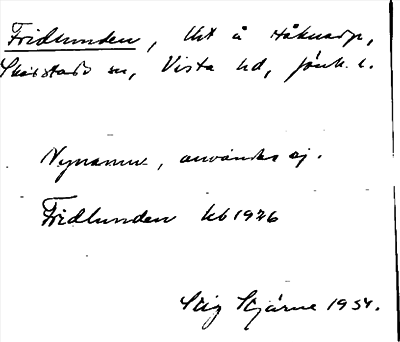 Fridlunden, lht å Håknarp,
Skärstads sn, Vista hd, Jönk. l.
Nynamn, användes ej.
Fridlunden kb 1926
Stig Stjärne 1934.